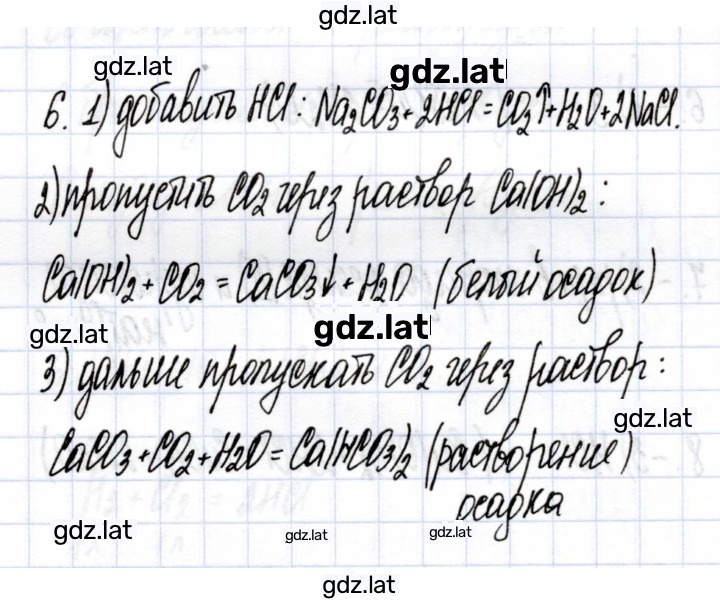 gdz.lat
gdz.lat gdz.lat
6. 1) добавить HCl: Na₂CO₃ + 2HCl = CO₂↑ + H₂O + 2NaCl.
2) пропустить CO₂ через раствор Ca(OH)₂:
Ca(OH)₂ + CO₂ = CaCO₃↓ + H₂O (белый осадок)
gdz.lat gdz.lat
3) дальше пропускать CO₂ через раствор:
gdz.lat
CaCO₃ + CO₂ + H₂O = Ca(HCO₃)₂ (растворение)
осадка
gdz.lat gdz.lat gdz.lat
gdz.lat